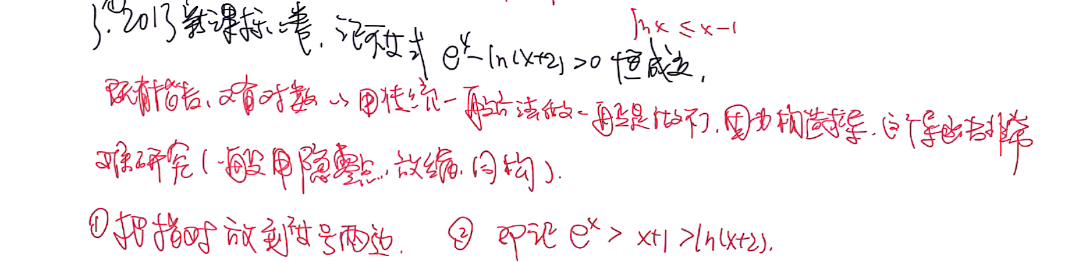 ln x ≤ x-1
3. 2013新课标二卷，证不等式 e^x - ln(x+2) > 0 恒成立,
既有指数、又有对数，用传统一般方法做一般是做不了，因为构造求导，这个导函数非常
难研究(一般用隐零点、放缩、同构).
①把指对放到等号两边. ② 即证 e^x > x+1 > ln(x+2).